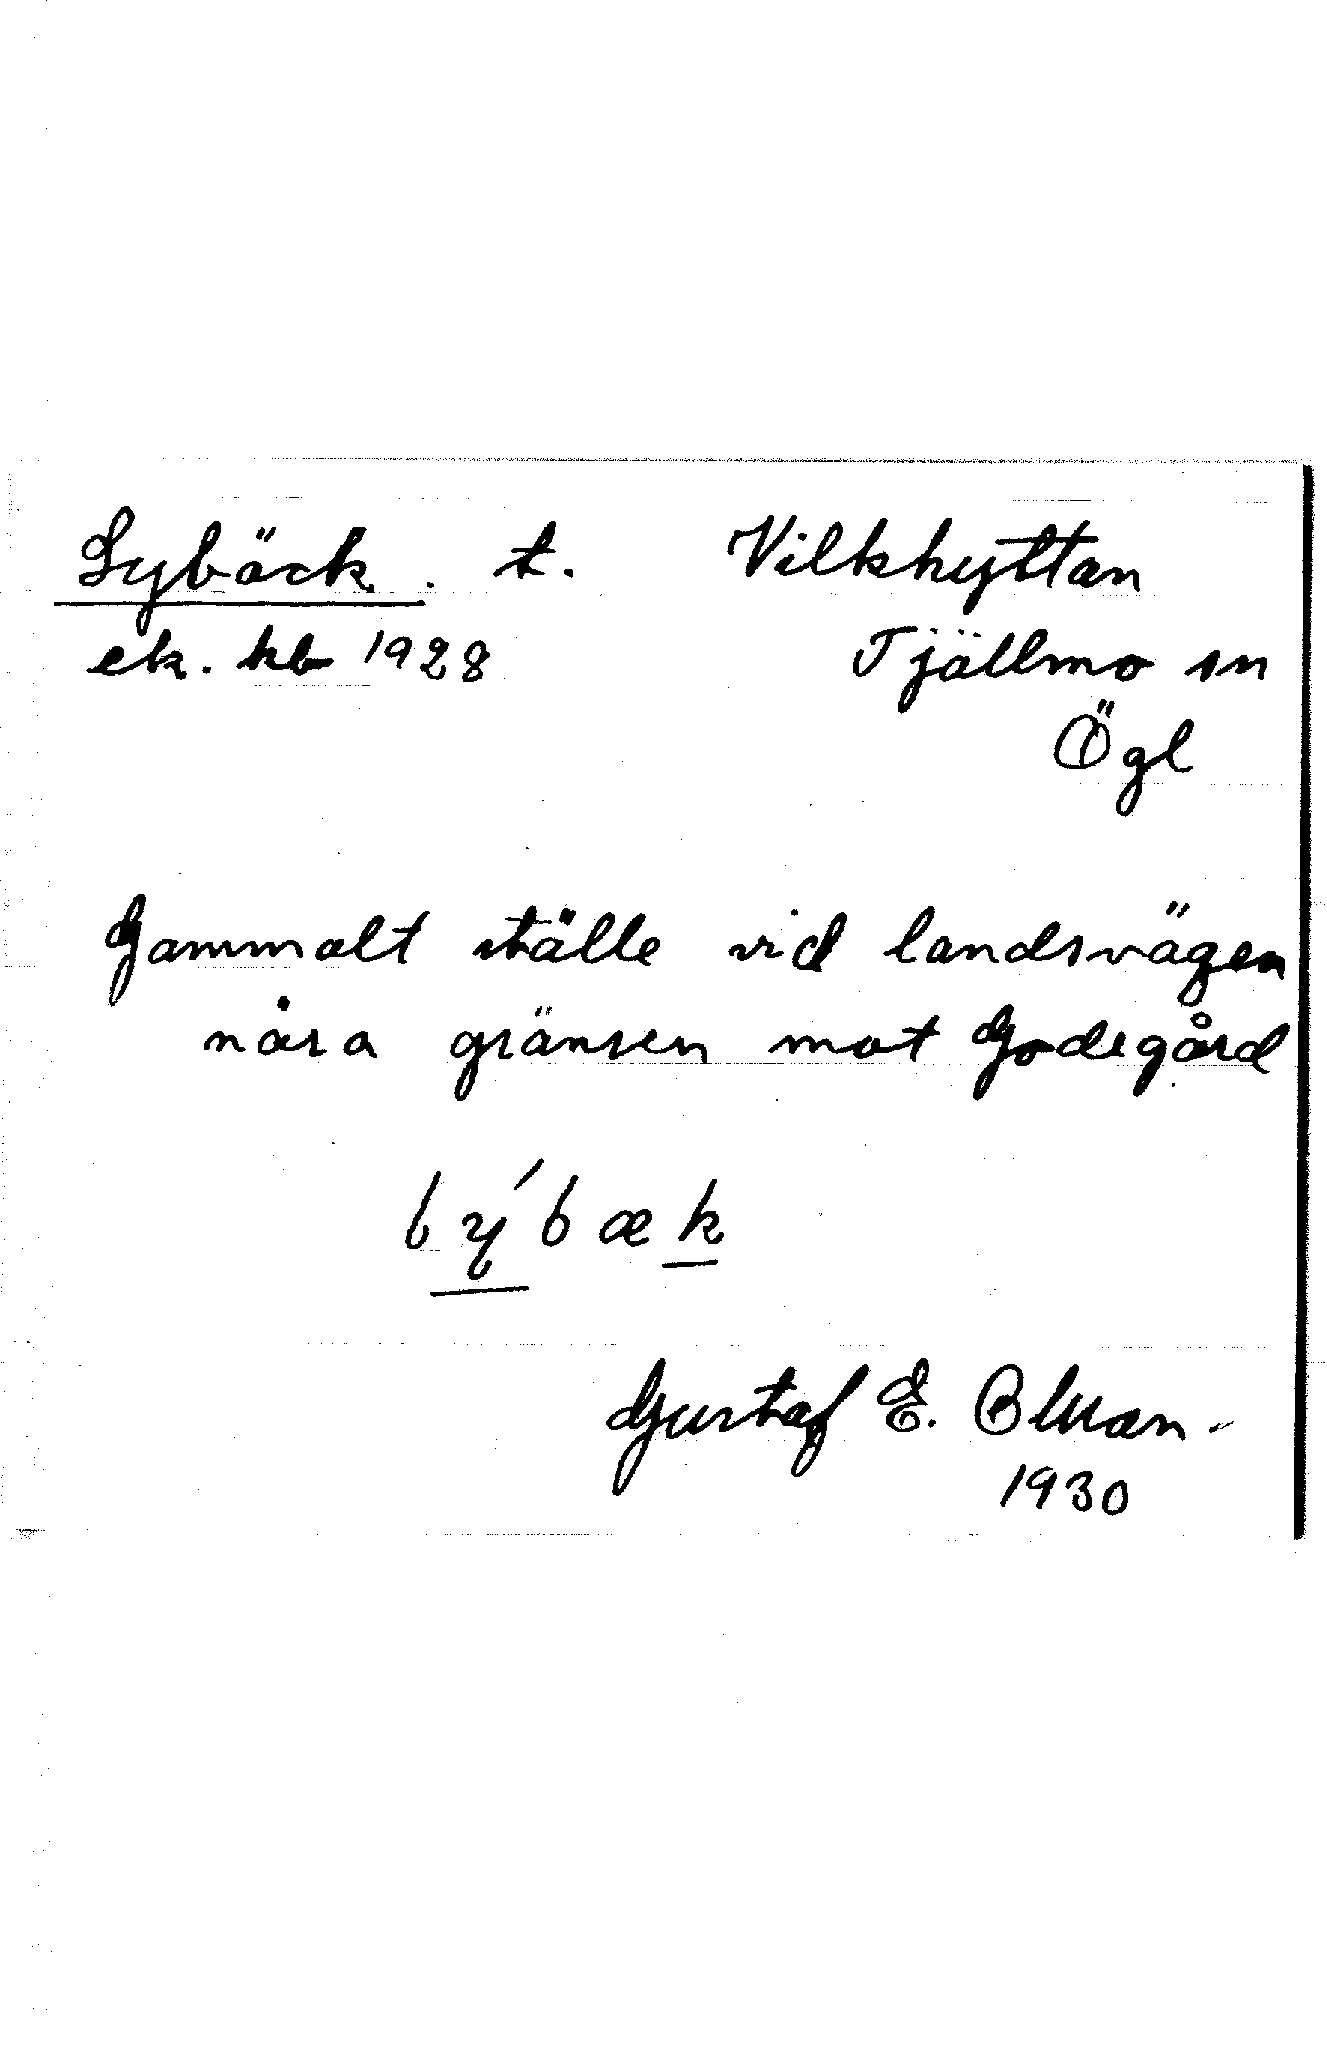 Lybäck. t. Vilkhyttan
ek. kb 1928 Tjällmo sn
Ögl
Gammalt ställe vid landsvägen
nära gränsen mot Godegård
lýbæk
Gustaf E.
1930